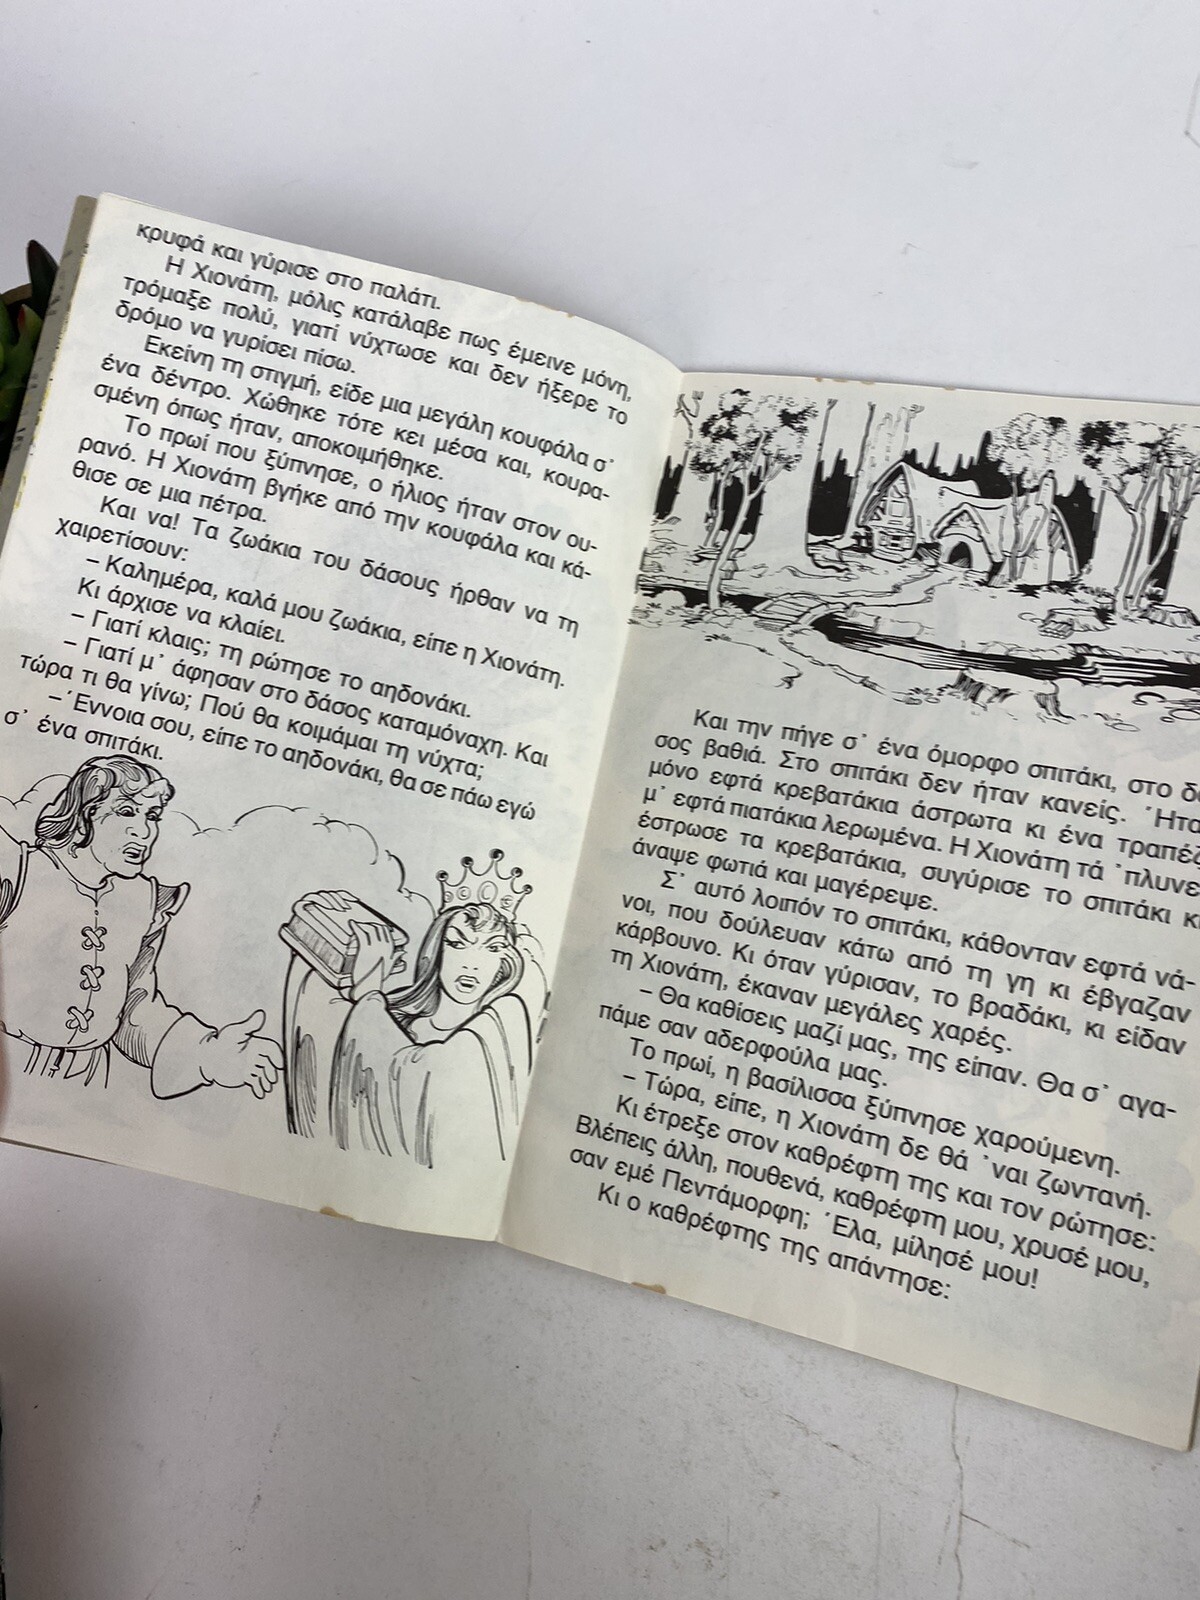 κρυφά και γύρισε στο παλάτι.
Η Χιονάτη, μόλις κατάλαβε πως έμεινε μόνη,
τρόμαξε πολύ, γιατί νύχτωσε και δεν ήξερε το
δρόμο να γυρίσει πίσω.
Εκείνη τη στιγμή, είδε μια μεγάλη κουφάλα σ᾿
ένα δέντρο. Χώθηκε τότε κει μέσα και, κουρα-
σμένη όπως ήταν, αποκοιμήθηκε.
Το πρωί που ξύπνησε, ο ήλιος ήταν στον ου-
ρανό. Η Χιονάτη βγήκε από την κουφάλα και κά-
θισε σε μια πέτρα.
Και να! Τα ζωάκια του δάσους ήρθαν να τη
χαιρετίσουν:
– Καλημέρα, καλά μου ζωάκια, είπε η Χιονάτη.
Κι άρχισε να κλαίει.
– Γιατί κλαις; τη ρώτησε το αηδονάκι.
– Γιατί μ᾿ άφησαν στο δάσος καταμόναχη. Και
τώρα τι θα γίνω; Πού θα κοιμάμαι τη νύχτα;
– Έννοια σου, είπε το αηδονάκι, θα σε πάω εγώ
σ᾿ ένα σπιτάκι.
Και την πήγε σ᾿ ένα όμορφο σπιτάκι, στο
σος βαθιά. Στο σπιτάκι δεν ήταν κανείς.
μόνο εφτά κρεβατάκια άστρωτα κι ένα
μ᾿ εφτά πιατάκια λερωμένα. Η Χιονάτη τά ᾿πλυνε
έστρωσε τα κρεβατάκια, συγύρισε το σπιτάκι
άναψε φωτιά και μαγέρεψε.
Σ᾿ αυτό λοιπόν το σπιτάκι, κάθονταν εφτά νά-
νοι, που δούλευαν κάτω από τη γη κι έβγαζαν
κάρβουνο. Κι όταν γύρισαν, το βραδάκι, κι είδαν
τη Χιονάτη, έκαναν μεγάλες χαρές.
– Θα καθίσεις μαζί μας, της είπαν. Θα σ᾿ αγα-
πάμε σαν αδερφούλα μας.
Το πρωί, η βασίλισσα ξύπνησε χαρούμενη.
– Τώρα, είπε, η Χιονάτη δε θά ᾿ναι ζωντανή.
Κι έτρεξε στον καθρέφτη της και τον ρώτησε:
Βλέπεις άλλη, πουθενά, καθρέφτη μου, χρυσέ μου,
σαν εμέ Πεντάμορφη; Έλα, μίλησέ μου!
Κι ο καθρέφτης της απάντησε: